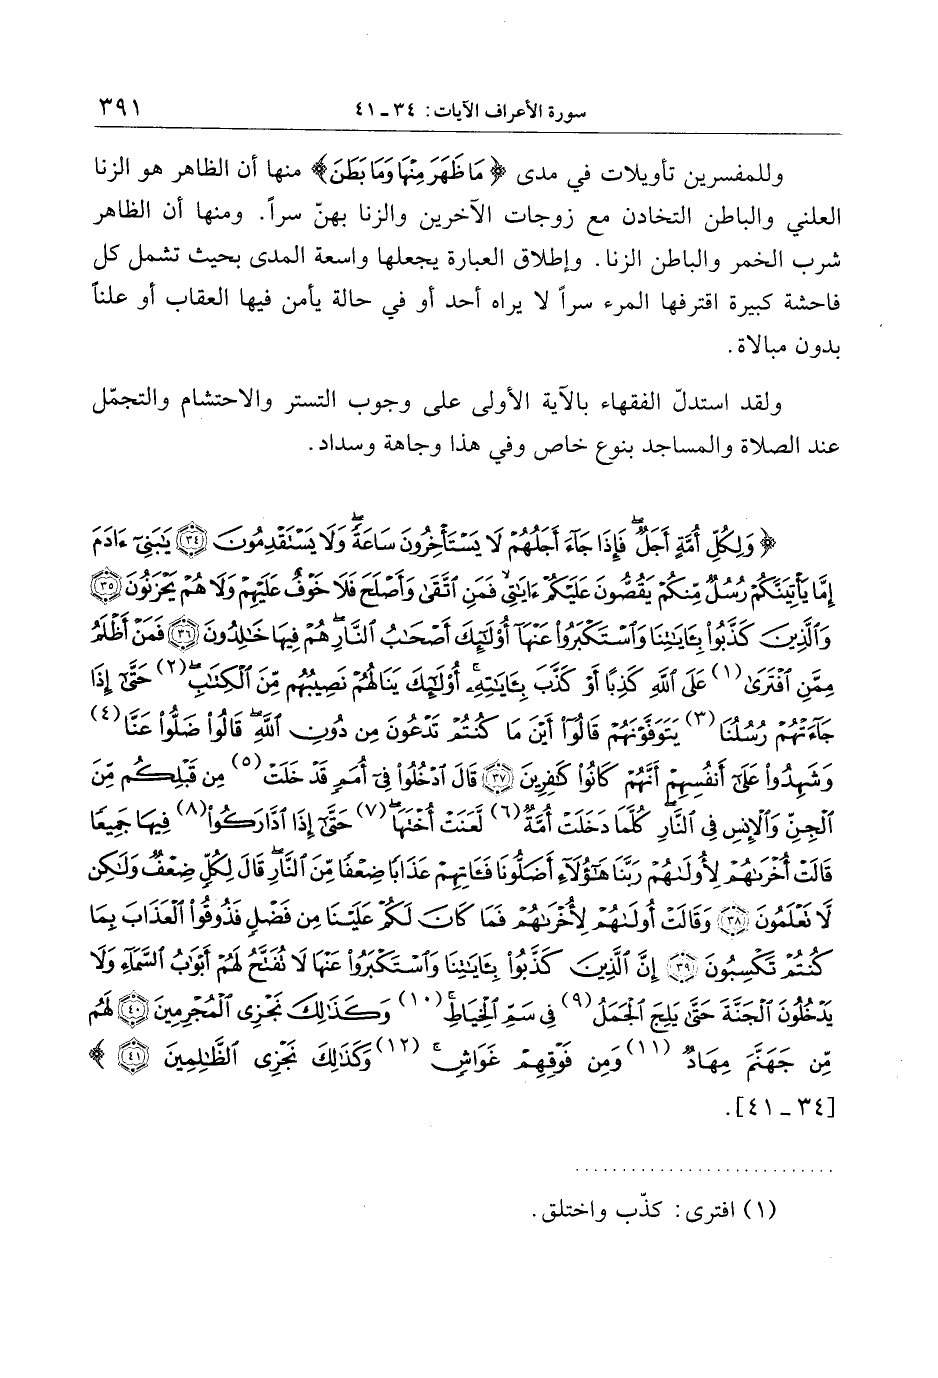 سورة الأعراف الآيات: ٣٤ ـ ٤١ ٣٩١
وللمفسرين تأويلات في مدى ﴿مَا ظَهَرَ مِنْهَا وَمَا بَطَنَ﴾ منها أن الظاهر هو الزنا
العلني والباطن التخادن مع زوجات الآخرين والزنا بهنّ سراً. ومنها أن الظاهر
شرب الخمر والباطن الزنا. وإطلاق العبارة يجعلها واسعة المدى بحيث تشمل كل
فاحشة كبيرة اقترفها المرء سراً لا يراه أحد أو في حالة يأمن فيها العقاب أو علناً
بدون مبالاة.
ولقد استدلّ الفقهاء بالآية الأولى على وجوب التستر والاحتشام والتجمّل
عند الصلاة والمساجد بنوع خاص وفي هذا وجاهة وسداد.
﴿وَلِكُلِّ أُمَّةٍ أَجَلٌۖ فَإِذَا جَآءَ أَجَلُهُمۡ لَا يَسۡتَأۡخِرُونَ سَاعَةٗۖ وَلَا يَسۡتَقۡدِمُونَ ٣٤ يَٰبَنِيٓ ءَادَمَ
إِمَّا يَأۡتِيَنَّكُمۡ رُسُلٞ مِّنكُمۡ يَقُصُّونَ عَلَيۡكُمۡ ءَايَٰتِي فَمَنِ ٱتَّقَىٰ وَأَصۡلَحَ فَلَا خَوۡفٌ عَلَيۡهِمۡ وَلَا هُمۡ يَحۡزَنُونَ ٣٥
وَٱلَّذِينَ كَذَّبُواْ بِـَٔايَٰتِنَا وَٱسۡتَكۡبَرُواْ عَنۡهَآ أُوْلَٰٓئِكَ أَصۡحَٰبُ ٱلنَّارِۖ هُمۡ فِيهَا خَٰلِدُونَ ٣٦ فَمَنۡ أَظۡلَمُ
مِمَّنِ ٱفۡتَرَىٰ (١) عَلَى ٱللَّهِ كَذِبًا أَوۡ كَذَّبَ بِـَٔايَٰتِهِۦٓۚ أُوْلَٰٓئِكَ يَنَالُهُمۡ نَصِيبُهُم مِّنَ ٱلۡكِتَٰبِۖ (٢) حَتَّىٰٓ إِذَا
جَآءَتۡهُمۡ رُسُلُنَا (٣) يَتَوَفَّوۡنَهُمۡ قَالُوٓاْ أَيۡنَ مَا كُنتُمۡ تَدۡعُونَ مِن دُونِ ٱللَّهِۖ قَالُواْ ضَلُّواْ عَنَّا (٤)
وَشَهِدُواْ عَلَىٰٓ أَنفُسِهِمۡ أَنَّهُمۡ كَانُواْ كَٰفِرِينَ ٣٧ قَالَ ٱدۡخُلُواْ فِيٓ أُمَمٖ قَدۡ خَلَتۡ (٥) مِن قَبۡلِكُم مِّنَ
ٱلۡجِنِّ وَٱلۡإِنسِ فِي ٱلنَّارِۖ كُلَّمَا دَخَلَتۡ أُمَّةٞ (٦) لَّعَنَتۡ أُخۡتَهَاۖ (٧) حَتَّىٰٓ إِذَا ٱدَّارَكُواْ (٨) فِيهَا جَمِيعٗا
قَالَتۡ أُخۡرَىٰهُمۡ لِأُولَىٰهُمۡ رَبَّنَا هَٰٓؤُلَآءِ أَضَلُّونَا فَـَٔاتِهِمۡ عَذَابٗا ضِعۡفٗا مِّنَ ٱلنَّارِۖ قَالَ لِكُلّٖ ضِعۡفٞ وَلَٰكِن
لَّا تَعۡلَمُونَ ٣٨ وَقَالَتۡ أُولَىٰهُمۡ لِأُخۡرَىٰهُمۡ فَمَا كَانَ لَكُمۡ عَلَيۡنَا مِن فَضۡلٖ فَذُوقُواْ ٱلۡعَذَابَ بِمَا
كُنتُمۡ تَكۡسِبُونَ ٣٩ إِنَّ ٱلَّذِينَ كَذَّبُواْ بِـَٔايَٰتِنَا وَٱسۡتَكۡبَرُواْ عَنۡهَا لَا تُفَتَّحُ لَهُمۡ أَبۡوَٰبُ ٱلسَّمَآءِ وَلَا
يَدۡخُلُونَ ٱلۡجَنَّةَ حَتَّىٰ يَلِجَ ٱلۡجَمَلُ (٩) فِي سَمِّ ٱلۡخِيَاطِۚ (١٠) وَكَذَٰلِكَ نَجۡزِي ٱلۡمُجۡرِمِينَ ٤٠ لَهُم
مِّن جَهَنَّمَ مِهَادٞ (١١) وَمِن فَوۡقِهِمۡ غَوَاشٖۚ (١٢) وَكَذَٰلِكَ نَجۡزِي ٱلظَّٰلِمِينَ ٤١ ﴾
[٣٤ ـ ٤١].
(١) افترى: كذّب واختلق.